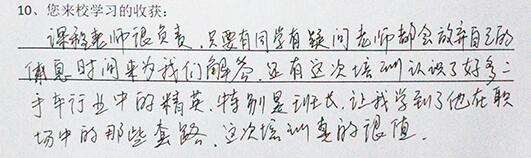 10、您来校学习的收获：
课程老师很负责，只要有同学有疑问老师都会放弃自己的
休息时间来为我们解答，还有这次培训认识了好多二
手车行业中的精英，特别是班长，让我学到了他在职
场中的那些套路，这次培训真的很值。